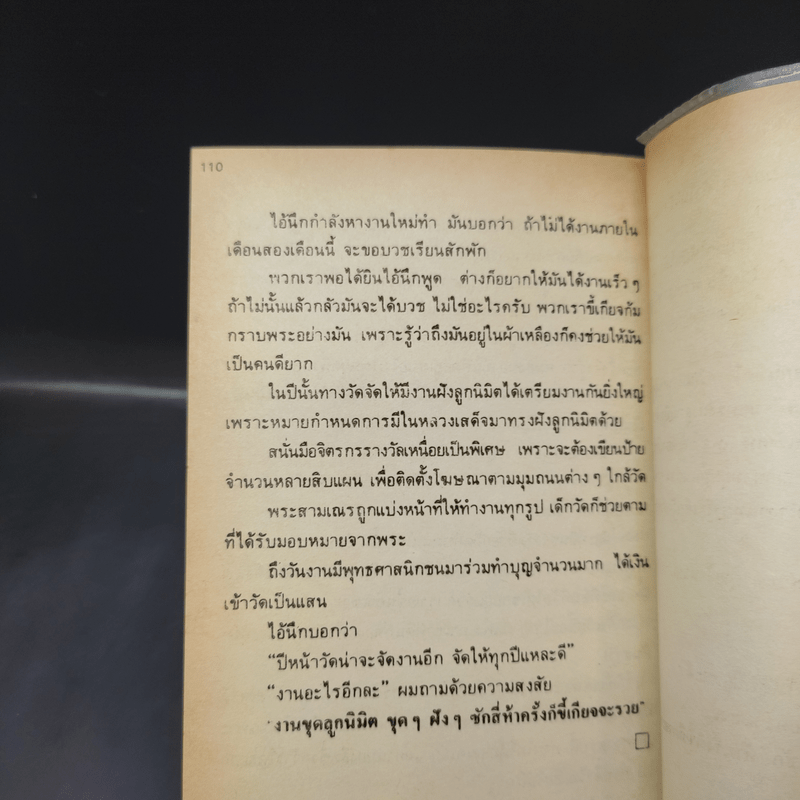 110
ไอ้นึกกำลังหางานใหม่ทำ มันบอกว่า ถ้าไม่ได้งานภายใน
เดือนสองเดือนนี้ จะขอบวชเรียนสักพัก
พวกเราพอได้ยินไอ้นึกพูด ต่างก็อยากให้มันได้งานเร็ว ๆ
ถ้าไม่นั้นแล้วกลัวมันจะได้บวช ไม่ใช่อะไรครับ พวกเราขี้เกียจก้ม
กราบพระอย่างมัน เพราะรู้ว่าถึงมันอยู่ในผ้าเหลืองก็คงช่วยให้มัน
เป็นคนดียาก
ในปีนั้นทางวัดจัดให้มีงานฝังลูกนิมิตได้เตรียมงานกันยิ่งใหญ่
เพราะหมายกำหนดการมีในหลวงเสด็จมาทรงฝังลูกนิมิตด้วย
สนั่นมือจิตรกรรางวัลเหนื่อยเป็นพิเศษ เพราะจะต้องเขียนป้าย
จำนวนหลายสิบแผน เพื่อติดตั้งโฆษณาตามมุมถนนต่าง ๆ ใกล้วัด
พระสามเณรถูกแบ่งหน้าที่ให้ทำงานทุกรูป เด็กวัดก็ช่วยตาม
ที่ได้รับมอบหมายจากพระ
ถึงวันงานมีพุทธศาสนิกชนมาร่วมทำบุญจำนวนมาก ได้เงิน
เข้าวัดเป็นแสน
ไอ้นึกบอกว่า
“ปีหน้าวัดน่าจะจัดงานอีก จัดให้ทุกปีแหละดี”
“งานอะไรอีกละ” ผมถามด้วยความสงสัย
“งานขุดลูกนิมิต ขุด ๆ ฝัง ๆ ซักสี่ห้าครั้งก็ขี้เกียจจะรวย”